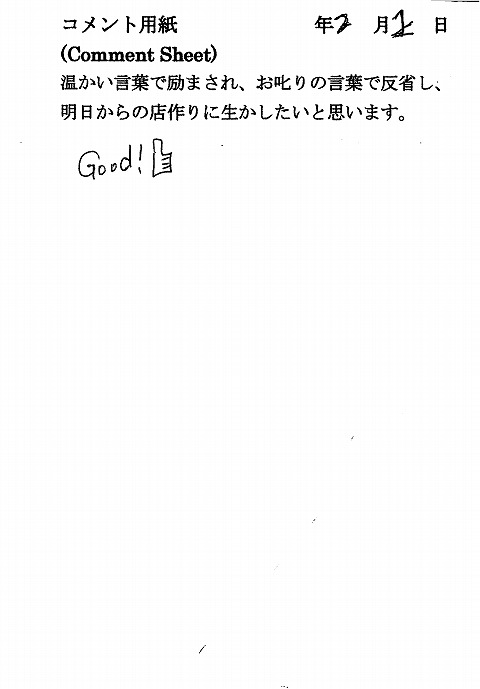 コメント用紙 年2月1日
(Comment Sheet)
温かい言葉で励まされ、お叱りの言葉で反省し、
明日からの店作りに生かしたいと思います。
Good!